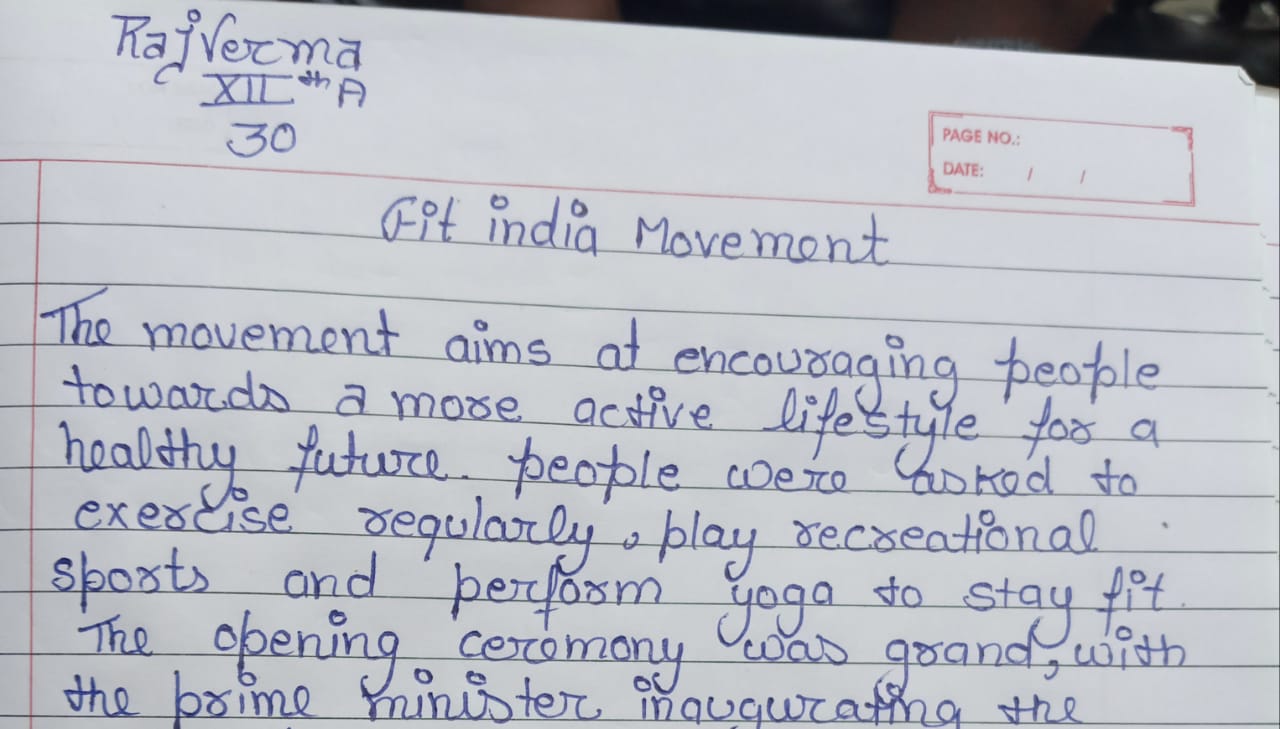 Raj Verma
XII th A
30
PAGE NO.:
DATE: / /
Fit india Movement
The movement aims at encouraging people
towards a more active lifestyle for a
healthy future. people were asked to
exercise regularly, play recreational
sports and perform yoga to stay fit.
The opening ceremony was grand, with
the prime minister inaugurating the